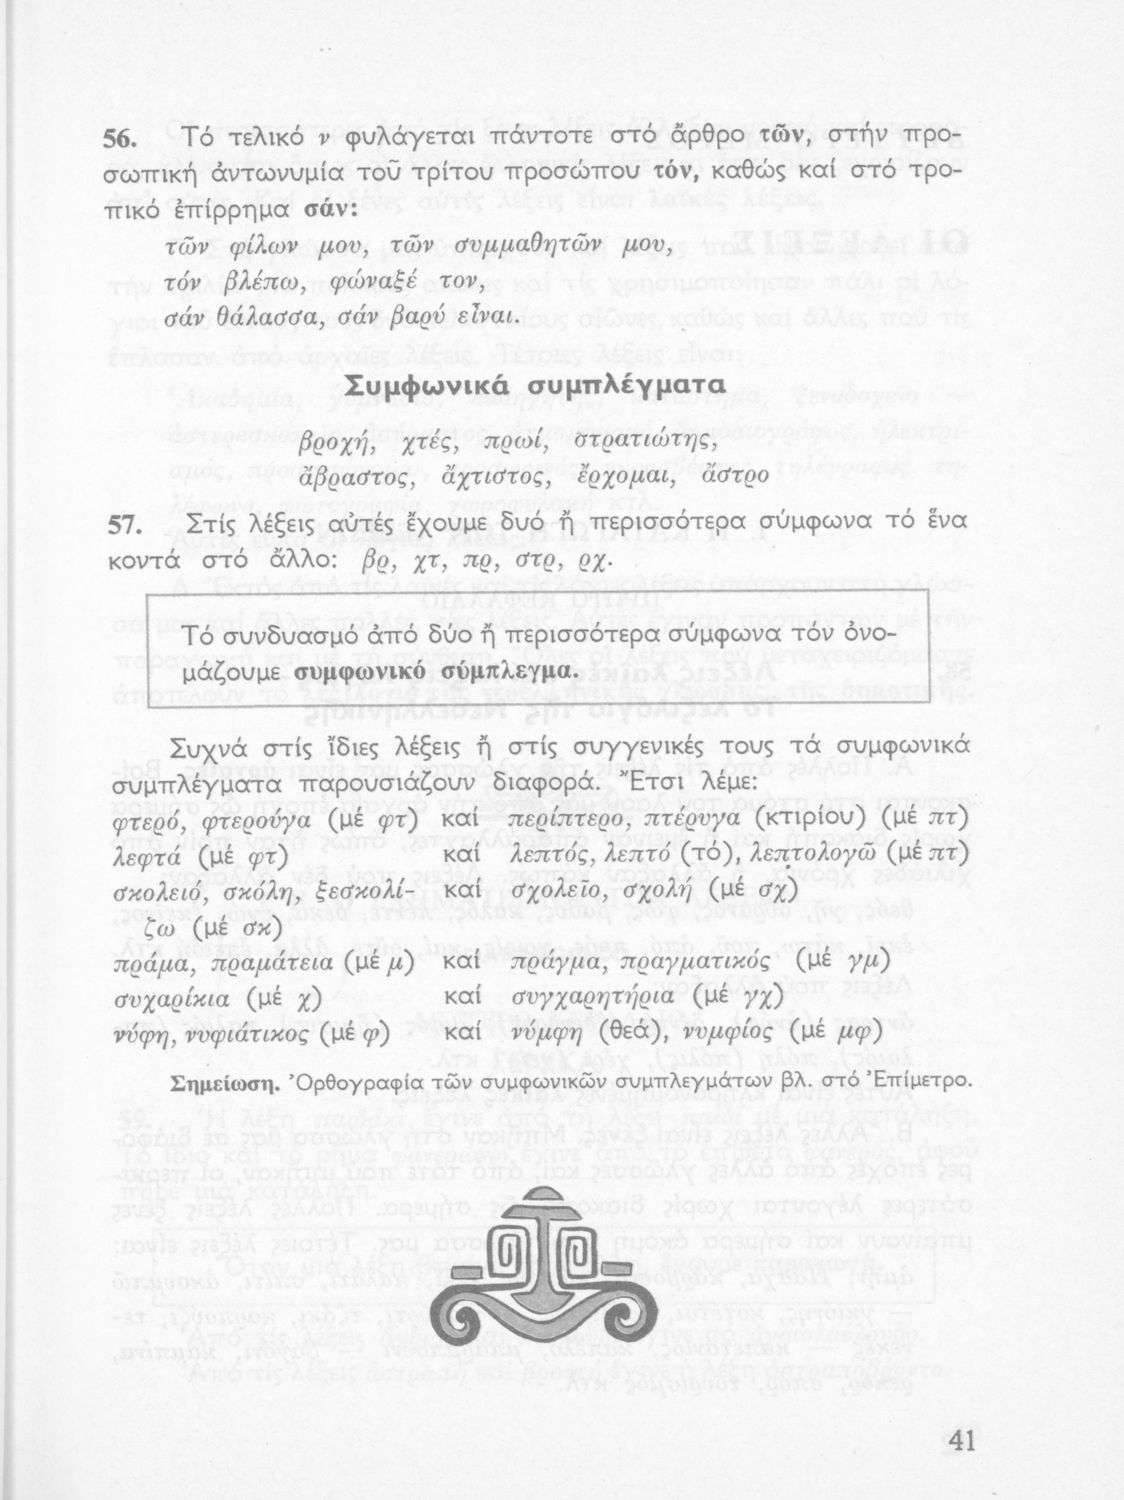 56. Τό τελικό ν φυλάγεται πάντοτε στό ἄρθρο τῶν, στήν προ-
σωπική ἀντωνυμία τοῦ τρίτου προσώπου τόν, καθώς καί στό τρο-
πικό ἐπίρρημα σάν:
τῶν φίλων μου, τῶν συμμαθητῶν μου,
τόν βλέπω, φώναξέ τον,
σάν θάλασσα, σάν βαρύ εἶναι.
Συμφωνικά συμπλέγματα
βροχή, χτές, πρωί, στρατιώτης,
ἄβραστος, ἄχτιστος, ἔρχομαι, ἄστρο
57. Στίς λέξεις αὐτές ἔχουμε δυό ἤ περισσότερα σύμφωνα τό ἕνα
κοντά στό ἄλλο: βρ, χτ, πρ, στρ, ρχ.
Τό συνδυασμό ἀπό δύο ἤ περισσότερα σύμφωνα τόν ὀνο-
μάζουμε συμφωνικό σύμπλεγμα.
Συχνά στίς ἴδιες λέξεις ἤ στίς συγγενικές τους τά συμφωνικά
συμπλέγματα παρουσιάζουν διαφορά. Ἔτσι λέμε:
φτερό, φτερούγα (μέ φτ) καί περίπτερο, πτέρυγα (κτιρίου) (μέ πτ)
λεφτά (μέ φτ) καί λεπτός, λεπτό (τό), λεπτολογῶ (μέ πτ)
σκολειό, σκόλη, ξεσκολί- καί σχολεῖο, σχολή (μέ σχ)
ζω (μέ σκ)
πράμα, πραμάτεια (μέ μ) καί πράγμα, πραγματικός (μέ γμ)
συχαρίκια (μέ χ) καί συγχαρητήρια (μέ γχ)
νύφη, νυφιάτικος (μέ φ) καί νύμφη (θεά), νυμφίος (μέ μφ)
Σημείωση. Ὀρθογραφία τῶν συμφωνικῶν συμπλεγμάτων βλ. στό Ἐπίμετρο.
41